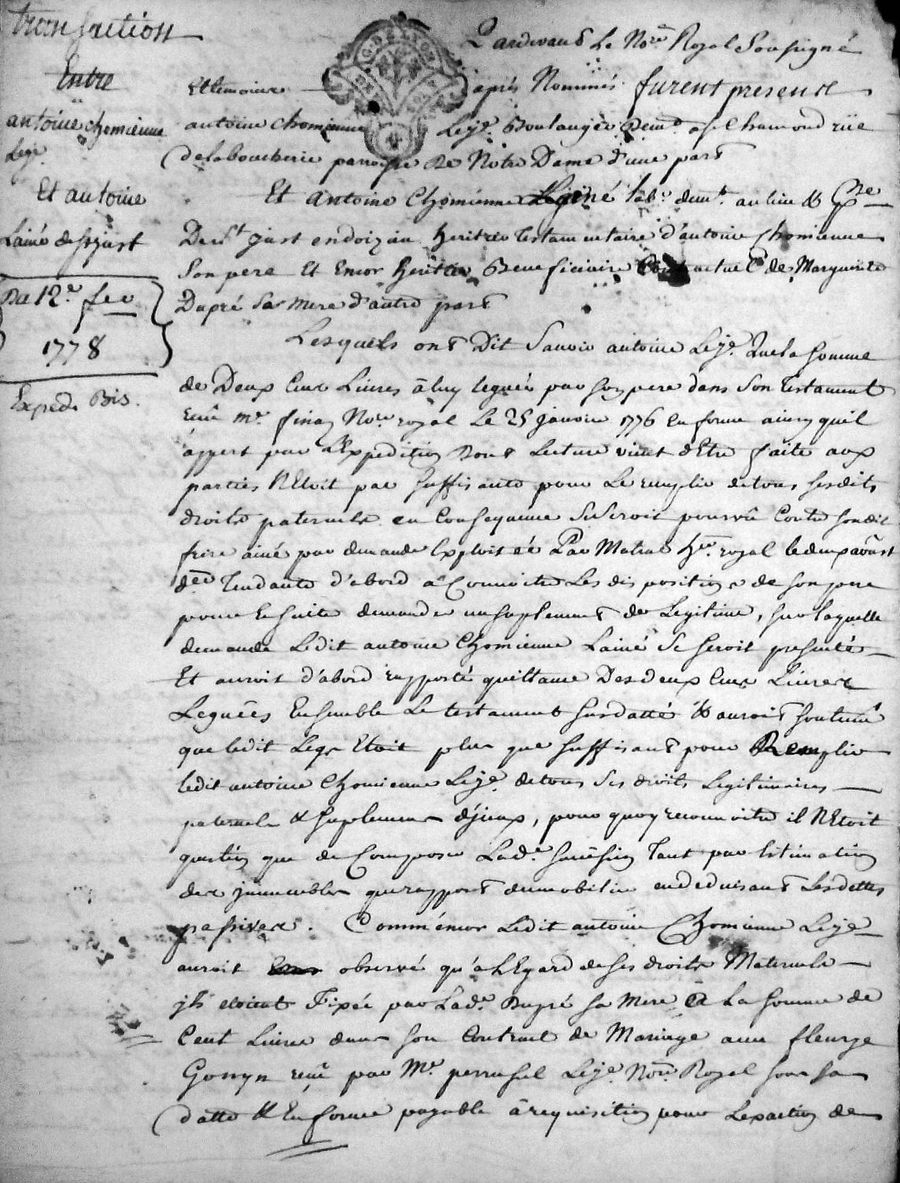 transaction
Entre
antoine chomienne
Leje
Et antoine
Lainé de st just
Du 12e. fev
1778
Exped. Bis.
G. DE LYON
Pardevant Le Nore. Royal Soussigné
Et temoins après Nommés furent presens
antoine chomienne Leje. Boulanger demt. a st chamond rüe
de la boucherie paroisse de Notre Dame d'une part
Et antoine Chomienne Lainé labr. demt. au lieu &
De st. just en doizieu heritier testamentaire d'antoine chomienne
Son pere Et Encor heritier Beneficiaire Contractuel de Marguerite
Dupré Sa mere d'autre part
Lesquels ont Dit Savoir antoine Leje. Que la Somme
de Deux Cent Livres à luy leguée par Son pere dans Son testament
reçu me. finaz Nore. royal Le 25 janvier 1776 en forme ainsy quil
appert par l'Expedition Dont Lecture vient d'Etre faite aux
parties N'Etoit pas Suffisante pour Le remplir de tous Sesdits
droits paternels en Consequence Se Seroit pourvû Contre Sondit
frere ainé par demande Exploitée Par Matras hr. royal le deux aoust
der. tendante d'abord à Connoitre Les dispositions de Son pere
pour Ensuite demander un Suplement de Legitime, Sur laquelle
demande Ledit antoine Chomienne Lainé Se Seroit presenté
Et auroit d'abord rapporté quittance Des deux Cent Livres
Leguées Ensemble Le testament Susdatté & auroit Soutenu
que ledit Legs Etoit plus que Suffisant pour Remplir
ledit antoine Chomienne Leje. de tous Ses droits Legitimaires
paternels & Suplement d'jceux, pour quoy reconnoitre il N'Etoit
question que de Composer Lade. Succession tant par Estimation
des jmmeubles que rapport du mobilier en deduisant Les dettes
passives. Comm'encor Ledit antoine Chomienne Leje
auroit observé qu'a l'Egard de Ses droits Maternels
jls etoient Fixés par Lade. Dupré Sa Mere a La Somme de
Cent Livres dans Son Contract de Mariage avec fleurye
Gonyn reçu par Me. perrussel Leje. Nore. Royal Sous Sa
datte & En forme payable à requisition pour Lexaction de